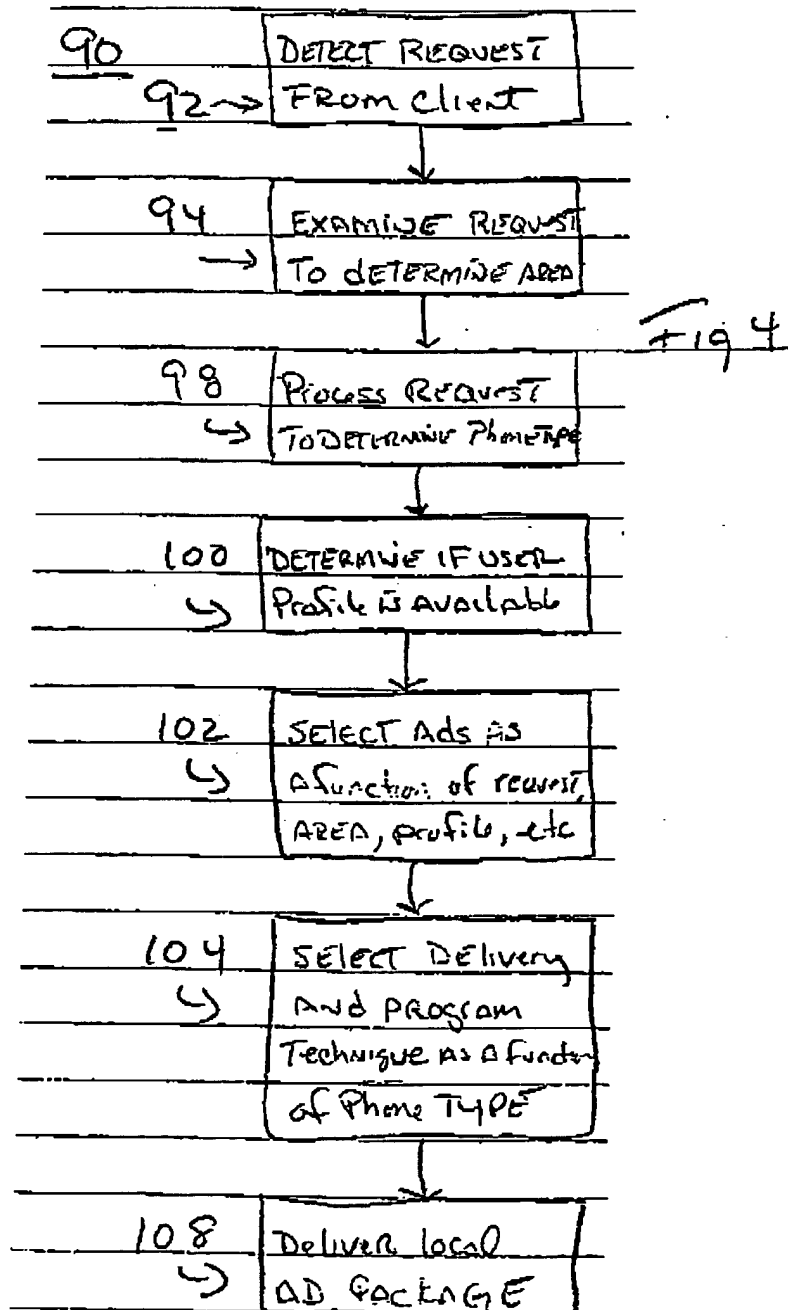 90
DETECT REQUEST
92 → FROM Client
94
EXAMINE REQUEST
→ To dETERMINE AREA
Fig 4
98
Process REQUEST
TO DETERMINE Phone TYPE
100
DETERMINE IF USER
Profile is AVAilAble
102
SELECT Ads AS
A function of request,
AREA, profile, etc
104
SElECT DElivery
And PROgRAM
Technique AS A function
of Phone TYPE
108
Deliver local
AD PACKAGE